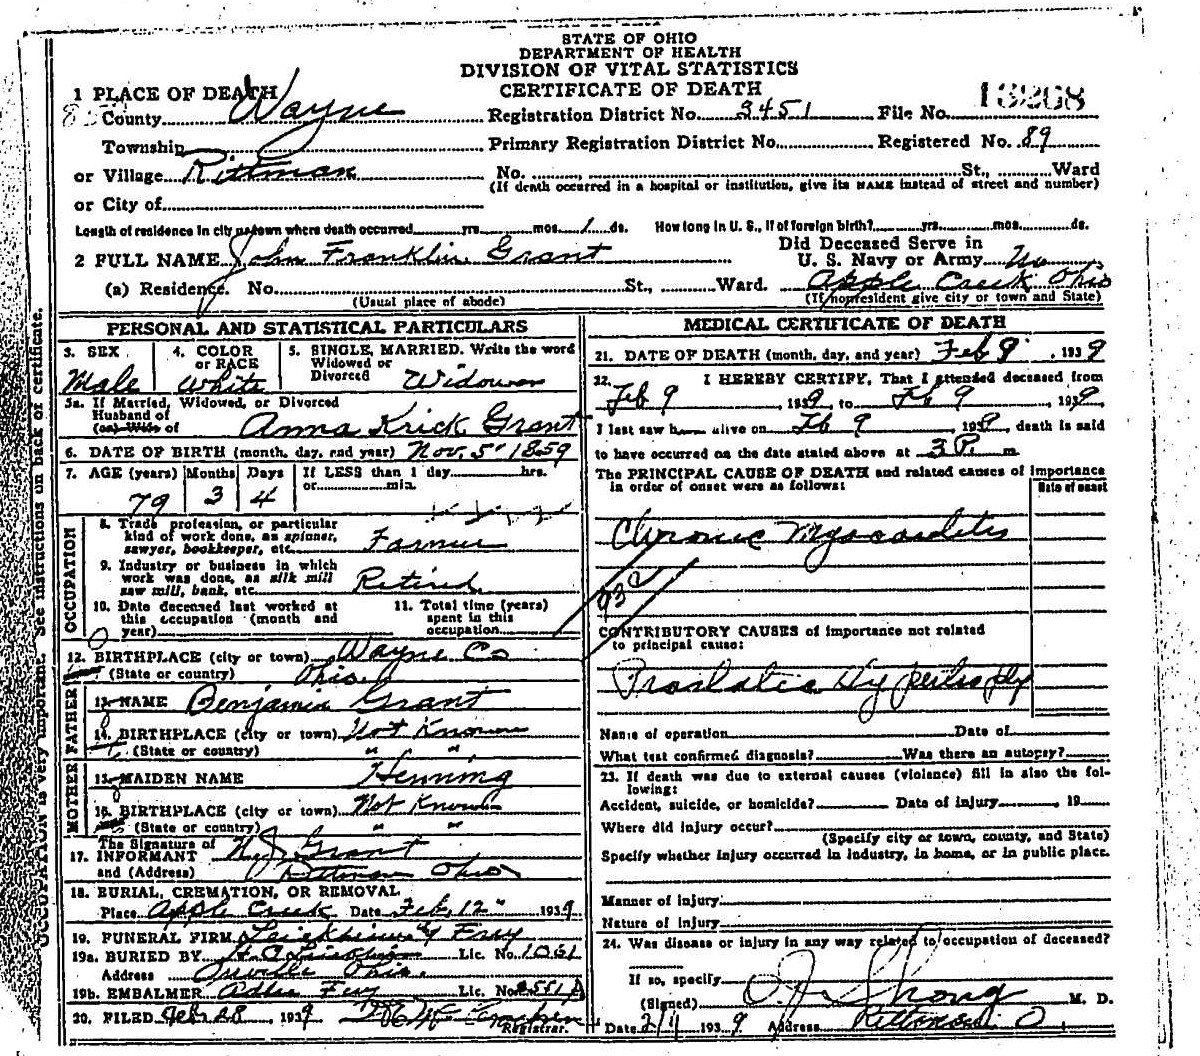 STATE OF OHIO
DEPARTMENT OF HEALTH
DIVISION OF VITAL STATISTICS
CERTIFICATE OF DEATH
1 PLACE OF DEATH
County Wayne Registration District No. 3451 File No. 13268
Township Primary Registration District No. Registered No. 89
or Village Rittman No. , St., Ward
(If death occurred in a hospital or institution, give its NAME instead of street and number)
or City of
Length of residence in city or town where death occurred yrs. mos. 1 ds. How long in U. S., if of foreign birth? yrs. mos. ds.
2 FULL NAME John Franklin Grant Did Deceased Serve in U. S. Navy or Army No
(a) Residence. No. St., Ward. Apple Creek Ohio
(Usual place of abode) (If nonresident give city or town and State)
OCCUPATION is very important. See instructions on back of certificate.
PERSONAL AND STATISTICAL PARTICULARS
3. SEX Male
4. COLOR or RACE White
5. SINGLE, MARRIED. Write the word Widowed or Divorced Widower
5a. If Married, Widowed, or Divorced
Husband of
(or) Wife of Anna Krick Grant
6. DATE OF BIRTH (month, day, and year) Nov. 5" 1859
7. AGE (years) 79 Months 3 Days 4 If LESS than 1 day hrs. or min.
OCCUPATION
8. Trade, profession, or particular kind of work done, as spinner, sawyer, bookkeeper, etc. Farmer
9. Industry or business in which work was done, as silk mill saw mill, bank, etc. Retired
10. Date deceased last worked at this occupation (month and year)
11. Total time (years) spent in this occupation
12. BIRTHPLACE (city or town) Wayne Co
(State or country) Ohio
FATHER
13. NAME Benjamin Grant
14. BIRTHPLACE (city or town) Not Known
(State or country) " "
MOTHER
15. MAIDEN NAME Henning
16. BIRTHPLACE (city or town) Not Known
(State or country) " "
17. The Signature of INFORMANT Grant
and (Address) Rittman Ohio
18. BURIAL, CREMATION, OR REMOVAL
Place Apple Creek Date Feb, 12" 1939
19. FUNERAL FIRM & Frey
19a. BURIED BY Lic. No. 1061
Address Orrville Ohio.
19b. EMBALMER Frey Lic. No. 2551 A
20. FILED Feb 28, 1939
Registrar.
MEDICAL CERTIFICATE OF DEATH
21. DATE OF DEATH (month, day, and year) Feb 9, 1939
22. I HEREBY CERTIFY, That I attended deceased from
Feb 9, 1939, to Feb 9, 1939,
I last saw h alive on Feb 9 1939, death is said
to have occurred on the date stated above at 3 P. m.
The PRINCIPAL CAUSE OF DEATH and related causes of importance in order of onset were as follows:
Date of onset
Chronic Myocarditis
93c
CONTRIBUTORY CAUSES of importance not related to principal cause:
Prostatic Hypertrophy
Name of operation Date of
What test confirmed diagnosis? Was there an autopsy?
23. If death was due to external causes (violence) fill in also the following:
Accident, suicide, or homicide? Date of injury , 19
Where did injury occur?
(Specify city or town, county, and State)
Specify whether injury occurred in industry, in home, or in public place.
Manner of injury
Nature of injury
24. Was disease or injury in any way related to occupation of deceased?
If so, specify
(Signed) M. D.
Date 2/11 1939 Address Rittman O.